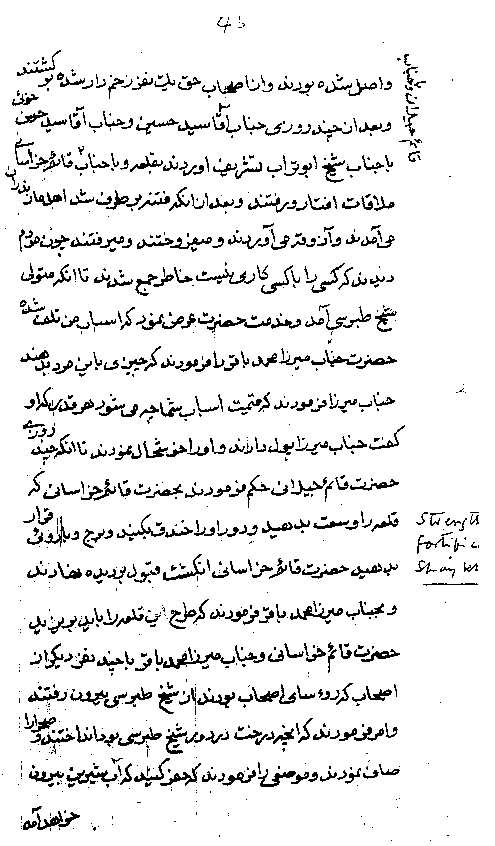 45
واصل شده بودند و از اصحاب حق یک نفر زخم دار شده بو کشتند
و بعد از چند روزی جناب آقا سید حسین و جناب آقا سید حسین
با جناب شیخ ابو تراب تشریف اوردند بقلعه و با جناب قائم خراسانی
ملاقات افتاد و رفتند و بعد از انکه فتنه بر طرف شد اهل مازندران
می آمدند و آذوقه می آوردند و میفروختند و میرفتند چون مردم
دیدند که کسی را با کسی کاری نیست خاطر جمع شدند تا انکه متولی
شیخ طبرسی آمد و خدمت حضرت عرض نمود که اسباب من تلف شده
حضرت جناب میرزا محمد باقر را فرمودند که چیزی باین مرد بدهند
جناب میرزا فرمودند که قیمت اسباب شما چه می شود هر قدر که او
گفت جناب میرزا پول دادند و او را خوشحال نمودند تا انکه چند روزی
حضرت قائم جیلانی حکم فرمودند بحضرت قائم خراسانی که
قلعه را وسعت بدهید و دور او را خندق بکنید و برج و باروئی قرار
بدهید حضرت قائم خراسانی انگشت قبول بر دیده نهادند
و بجناب میرزا محمد باقر فرمودند که طرح این قلعه را باید بریزید
حضرت قائم خراسانی و جناب میرزا محمد باقر با چند نفر دیگر از
اصحاب که رؤسای اصحاب بودند از شیخ طبرسی بیرون رفتند
و امر فرمودند که انچه درخت در دور شیخ طبرسی بود انداختند و صحرا را
صاف نمودند و موضعی را فرمودند که حفر کنید که آب شیرین بیرون
خواهد آمد
قائم جیلانی و جناب
Strength
fortific
Shaykh